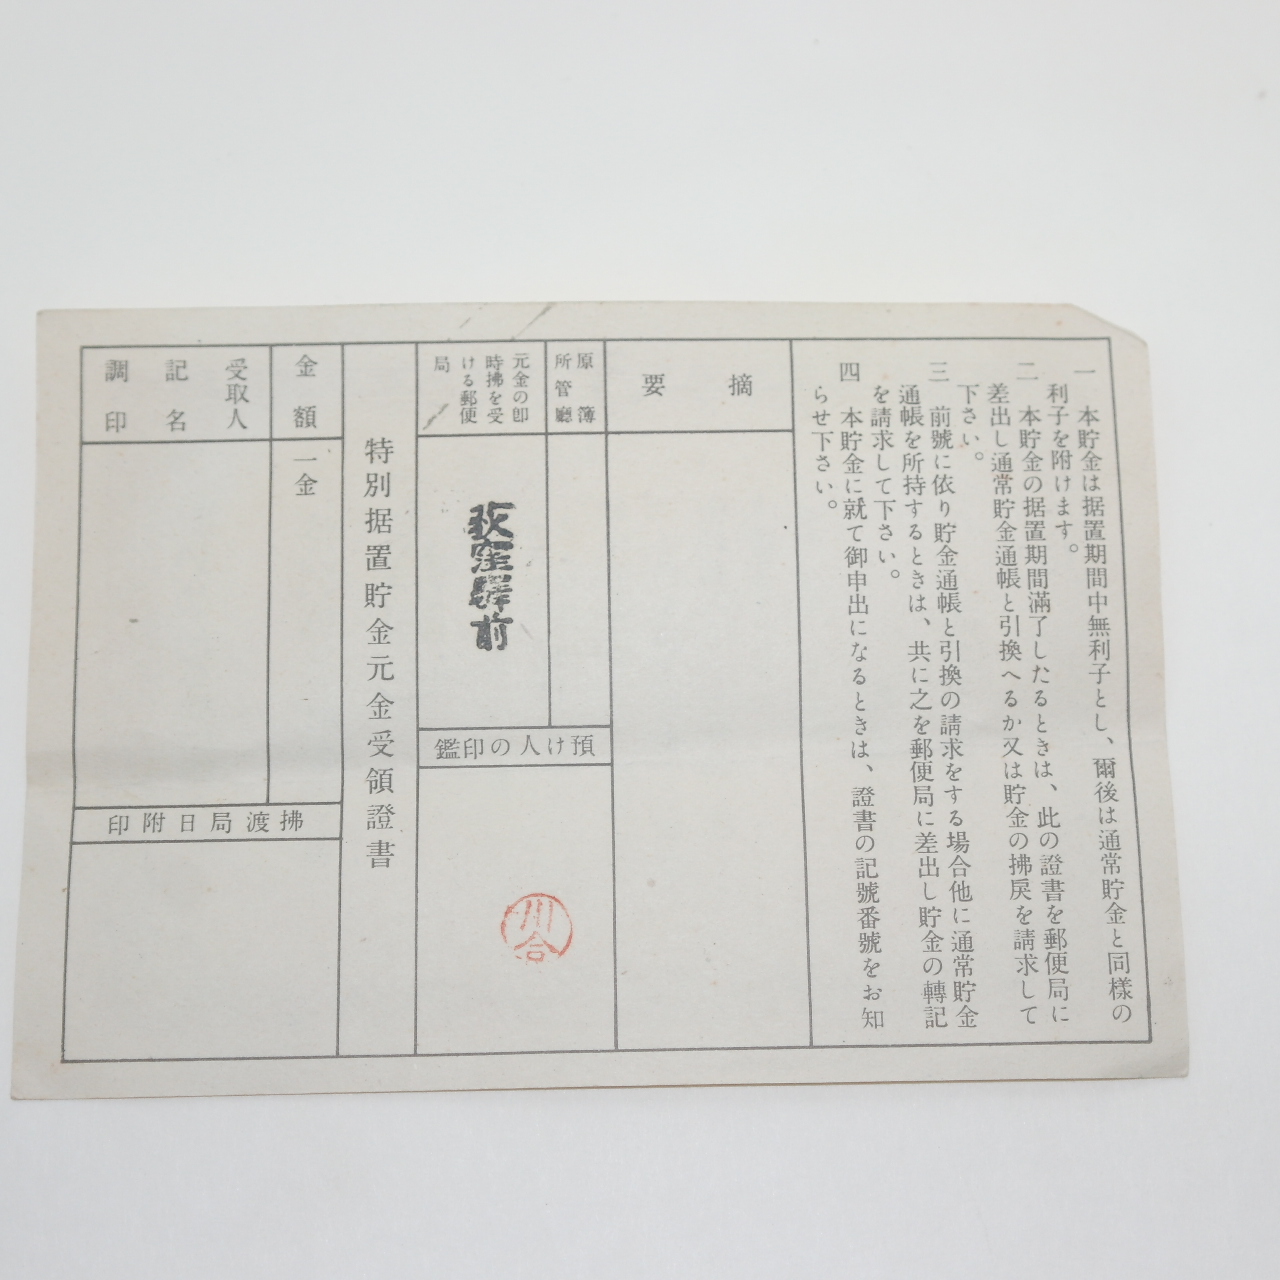 一　本貯金は据置期間中無利子とし、爾後は通常貯金と同樣の
利子を附けます。
二　本貯金の据置期間滿了したるときは、此の證書を郵便局に
差出し通常貯金通帳と引換へるか又は貯金の拂戻を請求して
下さい。
三　前號に依り貯金通帳と引換の請求をする場合他に通常貯金
通帳を所持するときは、共に之を郵便局に差出し貯金の轉記
を請求して下さい。
四　本貯金に就て御申出になるときは、證書の記號番號をお知
らせ下さい。
摘要
原簿
所管廳
元金の卽
時拂を受
ける郵便
局
荻窪驛前
預け人の印鑑
川合
特別据置貯金元金受領證書
金額
一金
受取人
記名
調印
拂渡局日附印